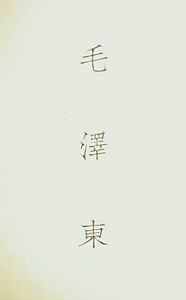 毛澤東